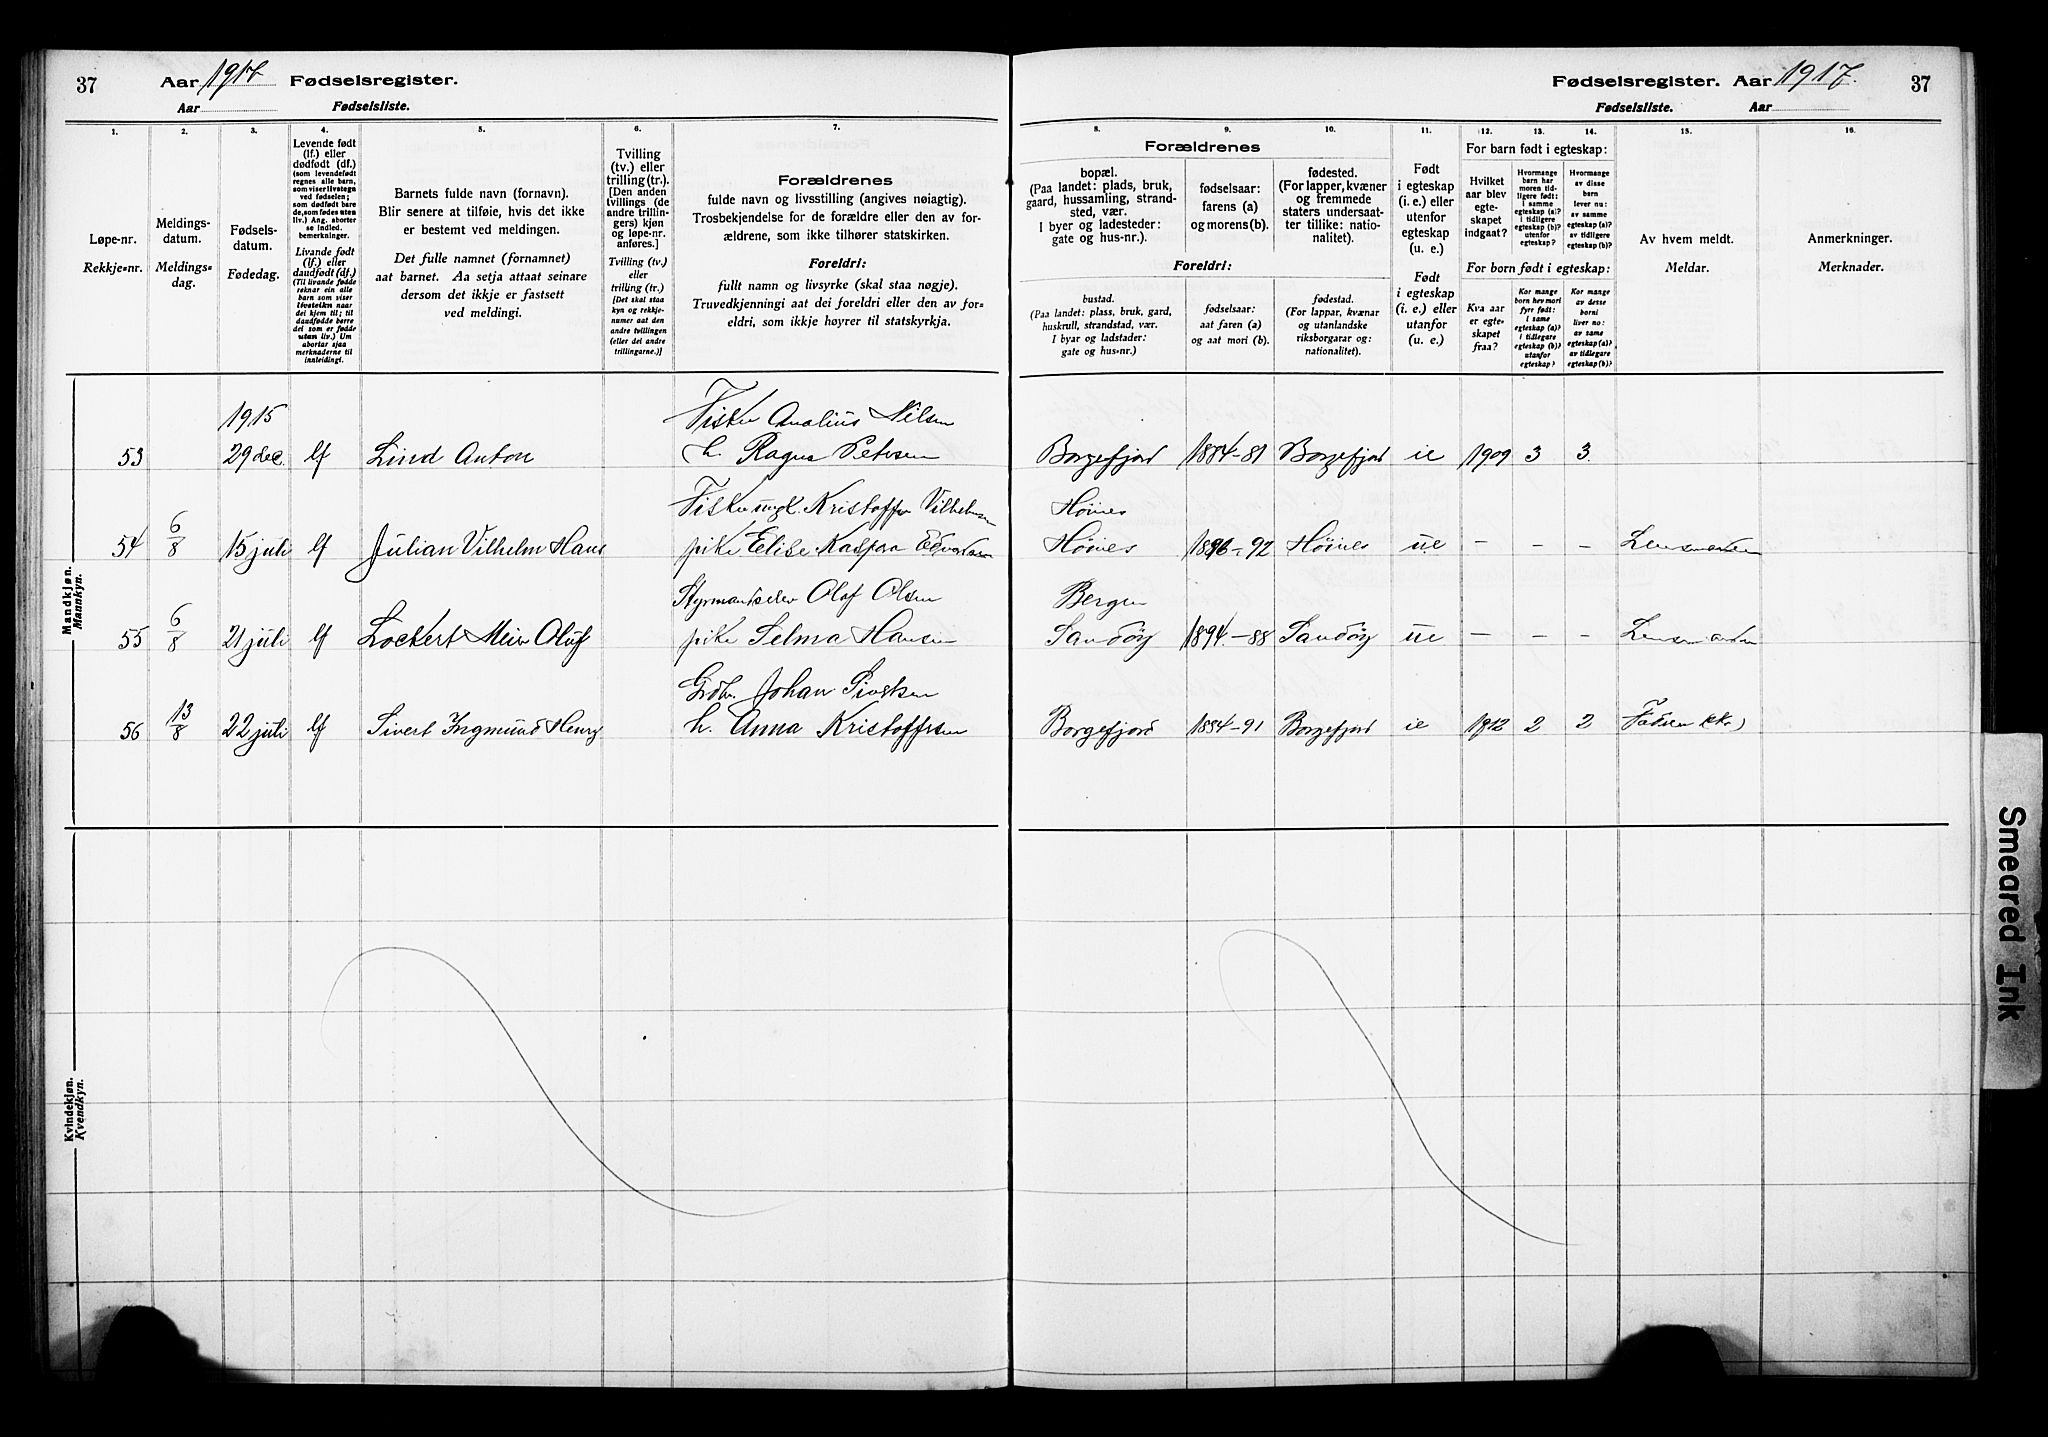 37 Aar 1917 Fødselsregister.
Aar Fødselsliste.
1. 2. 3. 4. 5. 6. 7.
Løpe-nr.
Rekkje-nr.
Meldings-
datum.
Meldings-
dag.
Fødsels-
datum.
Fødedag.
Levende født
(lf.) eller
dødfødt (df.)
(som levendefødt
regnes alle barn,
som viser livstegn
ved fødselen;
som dødfødt bare
de, som fødes uten
liv.) Ang. aborter
se indled.
bemerkninger.
Livande født
(lf.) eller
daudfødt (df.)
(Til livande fødde
reknar ein alle
born som viser
livsteikn naar
dei kjem til; til
daudfødde berre
dei som er fødde
utan liv.) Um
abortar sjaa
merknaderne til
innleidingi.
Barnets fulde navn (fornavn).
Blir senere at tilføie, hvis det ikke
er bestemt ved meldingen.
Det fulle namnet (fornamnet)
aat barnet. Aa setja attaat seinare
dersom det ikkje er fastsett
ved meldingi.
Tvilling
(tv.) eller
trilling (tr.).
[Den anden
tvillings (de
andre trillin-
gers) kjøn
og løpe-nr.
anføres.]
Tvilling (tv.)
eller
trilling (tr.)
[Det skal staa
kyn og rekkje-
numer aat den
andre tvillingen
(eller dei andre
trillingarne.)]
Forældrenes
fulde navn og livsstilling (angives nøiagtig).
Trosbekjendelse for de forældre eller den av for-
ældrene, som ikke tilhører statskirken.
Foreldri:
fullt namn og livsyrke (skal staa nøgje).
Truvedkjenningi aat dei foreldri eller den av for-
eldri, som ikkje høyrer til statskyrkja.
Mandkjøn.
Mannkyn.
1915
Fisker Analius Nilsen
53 29 dec. lf Lind Anton h. Ragna Petersen
Fisker ungk. Kristoffer Vilhelmsen
54 6/8 15 juli lf Julian Vilhelm Hans pike Elise Kaspara Edvardsen
Styrmandselev Olaf Olsen
55 6/8 21 juli lf Lockert Meier Oluf pike Selma Hansen
Grdbr. Johan Sivertsen
56 13/8 22 juli lf Sivert Ingmund Henry h. Anna Kristoffersen
Kvindekjøn.
Kvendkyn.
Fødselsregister. Aar 1917. 37
Fødselsliste. Aar
8. 9. 10. 11. 12. 13. 14. 15. 16.
Forældrenes
bopæl.
(Paa landet: plads, bruk,
gaard, hussamling, strand-
sted, vær.
I byer og ladesteder:
gate og hus-nr.).
fødselsaar:
farens (a)
og morens (b).
fødested.
(For lapper, kvæner
og fremmede
staters undersaat-
ter tillike: natio-
nalitet).
Foreldri:
bustad.
(Paa landet: plass, bruk, gard,
huskrull, strandstad, vær.
I byar og ladstader:
gate og hus-nr.)
fødselsaar:
aat faren (a)
og aat mori (b).
fødestad.
(For lappar, kvænar
og utanlandske
riksborgarar og:
nationalitet).
Født
i egteskap
(i. e.) eller
utenfor
egteskap
(u. e.)
Født
i egteskap
(i. e.) eller
utanfor
(u. e.)
For barn født i egteskap:
Hvilket
aar blev
egte-
skapet
indgaat?
Hvormange
barn har
moren tid-
ligere født:
i samme
egteskap (a)?
i tidligere
egteskap (b)?
utenfor
egteskap?
Hvormange
av disse
barn
lever nu:
av samme
egteskap (a)?
av tidligere
egteskap (b)?
For born født i egteskap:
Kva aar
er egte-
skapet
fraa?
Kor mange
born hev mori
fyrr født:
i same
egteskap (a)?
i tidlegare
egteskap (b)?
utanfor
egteskap?
Kor mange
av desse
borni
liver no:
av same
egteskap (a)?
av tidlegare
egteskap (b)?
Av hvem meldt.
Meldar.
Anmerkninger.
Merknader.
Borgefjord 1884-81 Borgefjord ie 1909 3 3.
Høines
Høines 1896-92 Høines ue - - - Lensmanden
Bergen
Sandörg 1894-88 Sandörg ue - - - Lensmanden
Borgefjord 1884-91 Borgefjord ie 1912 2 2 Faderen
Smeared Ink